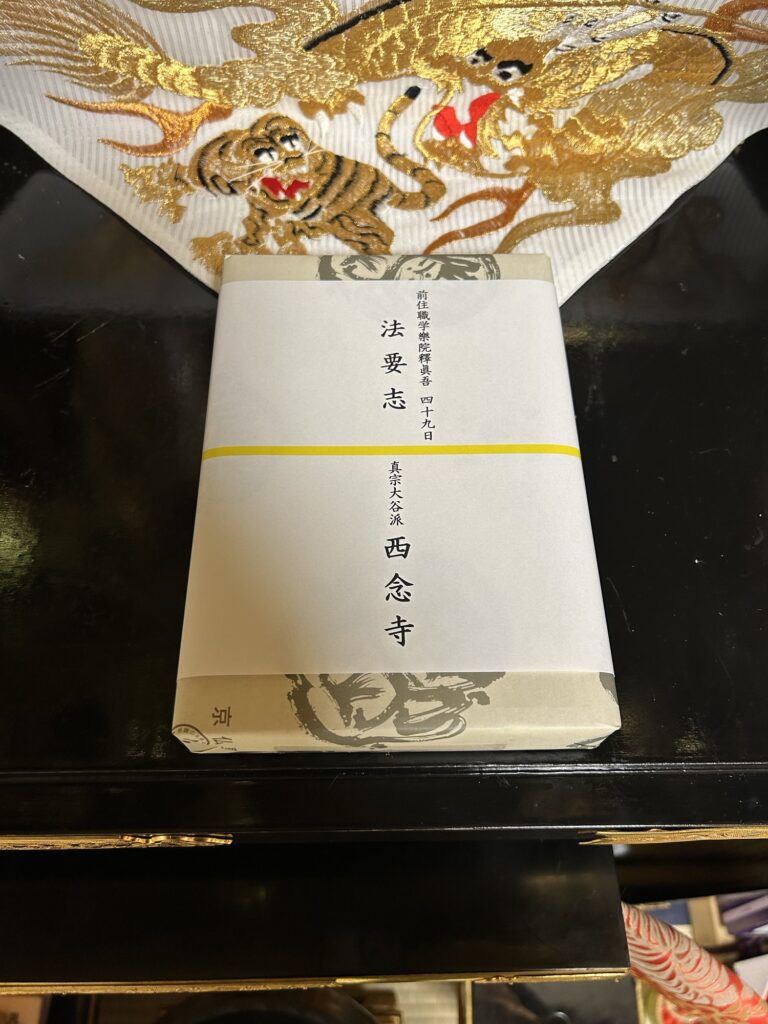 前住職学樂院釋眞吾 四十九日
法要志
真宗大谷派
西念寺
京